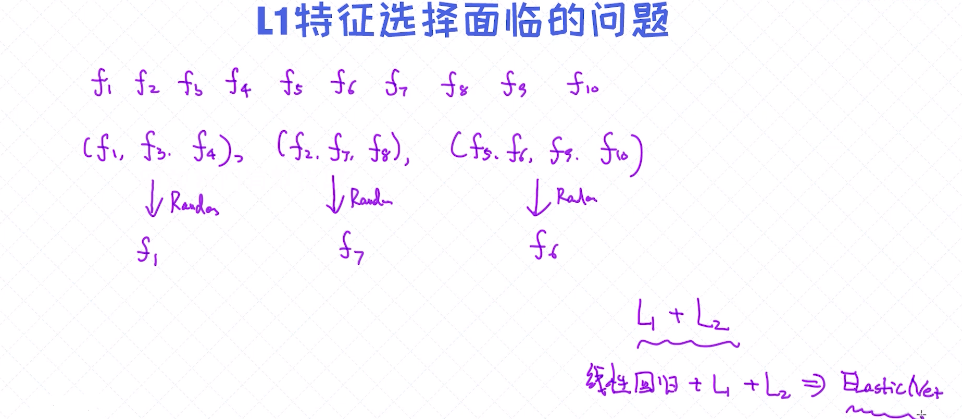 L1特征选择面临的问题
f1 f2 f3 f4 f5 f6 f7 f8 f9 f10
(f1, f3. f4), (f2. f7, f8), (f5. f6, f9. f10)
Random Random Random
f1 f7 f6
L1 + L2
线性回归 + L1 + L2 ⇒ ElasticNet